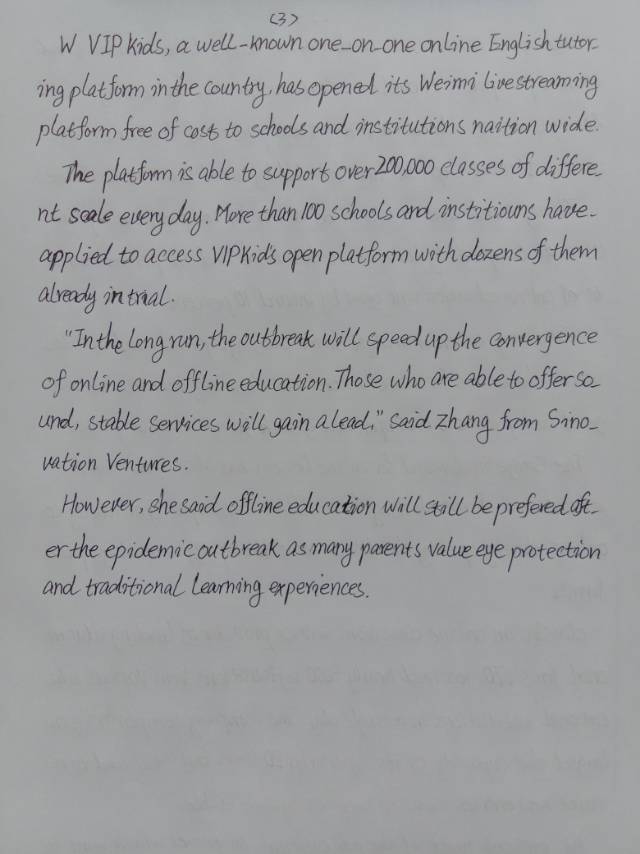 (3)
W VIP Kids, a well-known one-on-one online English tutor-
ing platform in the country, has opened its Weimi livestreaming
platform free of cost to schools and institutions naition wide.
The platform is able to support over 200,000 classes of differe-
nt scale every day. More than 100 schools and institiouns have-
applied to access VIPKid's open platform with dozens of them
already in trial.
"In the long run, the outbreak will speed up the convergence
of online and offline education. Those who are able to offer so-
und, stable services will gain a lead," said Zhang from Sino-
vation Ventures.
However, she said offline education will still be prefered aft-
er the epidemic outbreak as many parents value eye protection
and traditional learning experiences.